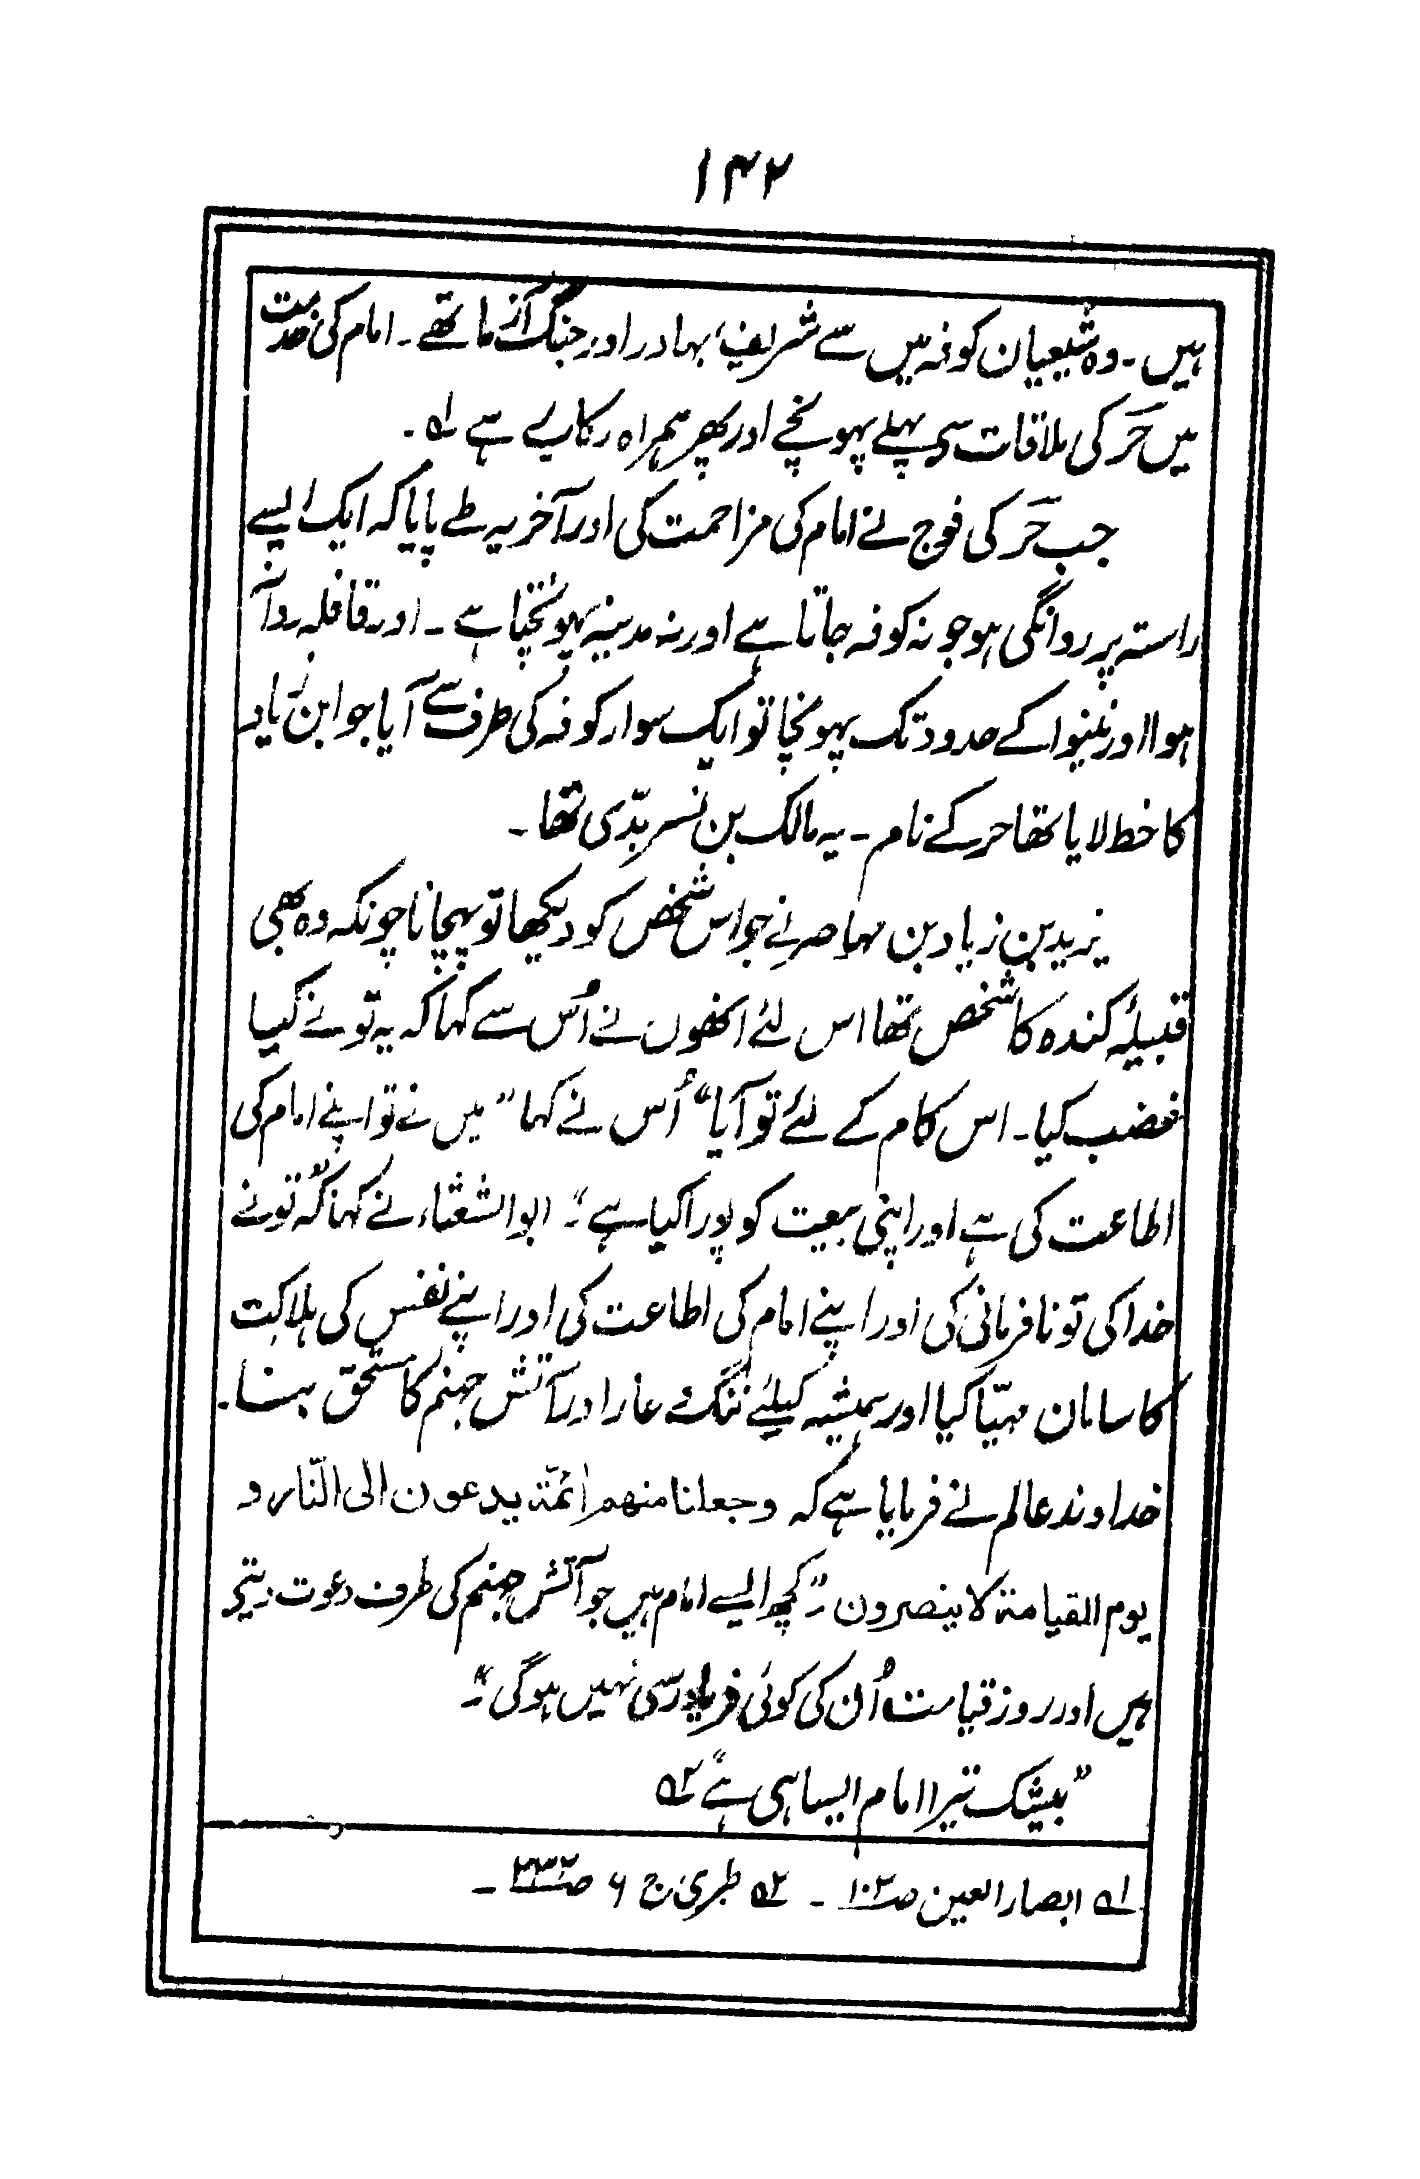 ۱۴۲
ہیں۔ وہ شیعیان کوفہ میں سے شریف، بہادر اور جنگ آزما تھے۔ امام کی خدمت
میں حر کی ملاقات سی پہلے پہونچے اور پھر ہمراہ رکاب رہے ہے لہ۔
جب حر کی فوج نے امام کی مزاحمت کی اور آخر یہ طے پایا کہ ایک ایسے
راستہ پر روانگی ہو جو نہ کوفہ جاتا ہے اور نہ مدینہ پہونختپا ہے۔ اور قافلہ روانہ
ہوا اور نینوا کے حدود تک پہونچا تو ایک سوار کوفہ کی طرف سے آیا جو ابن زیاد
کا خط لایا تھا حر کے نام۔ یہ مالک بن نسر بدّی تھا۔
یزید بن زیاد بن مہاصر نے جو اس شخص کو دیکھا تو پہچانا چونکہ وہ بھی
قبیلۂ کندہ کا شخص تھا اس لئے انھوں نے اُس سے کہا کہ یہ تو نے کیا
غضب کیا۔ اس کام کے لئے تو آیا“ اُس نے کہا ”میں نے تو اپنے امام کی
اطاعت کی ہے اور اپنی بیعت کو پورا کیا ہے“۔ ابوالشعثاء نے کہا کہ ”تو نے
خدا کی تو نافرمانی کی اور اپنے امام کی اطاعت کی اور اپنے نفس کی ہلاکت
کا سامان مہیّا کیا اور ہمیشہ کیلئے ننگ و عار اور آتش جہنم کا مستحق بنا۔
خداوند عالم نے فرمایا ہے کہ وجعلنا منھم ائمّۃ یدعون الی النّار و
یوم القیامۃ لا ینصرون۔ ”کچھ ایسے امام ہیں جو آتش جہنم کی طرف دعوت دیتے
ہیں اور روز قیامت اُن کی کوئی فریادرسی نہیں ہوگی“۔
”بیشک تیرا امام ایسا ہی ہے“ ۲ہ
لہ ابصار العین ص۱۰۲۔ ۲ہ طبری ج ۶ ص۲۳۲۔